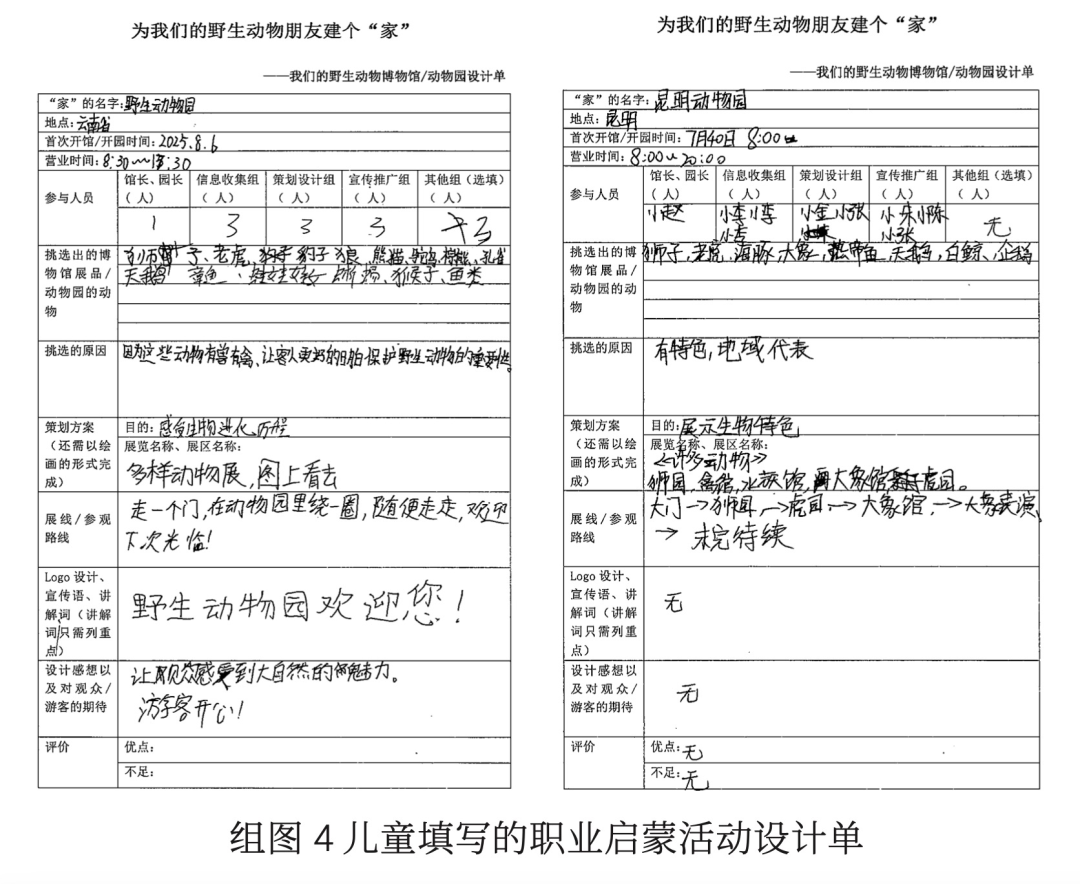 为我们的野生动物朋友建个“家”
——我们的野生动物博物馆/动物园设计单
“家”的名字:野生动物园
地点:云南省
首次开馆/开园时间:2025.8.6
营业时间:8:30~18:30
参与人员
馆长、园长（人）
信息收集组（人）
策划设计组（人）
宣传推广组（人）
其他组（选填）（人）
1
3
3
3
挑选出的博物馆展品/动物园的动物
子、老虎,豹子 狼、熊猫、孔雀
天鹅 章鱼、娃娃鱼 猴子、鱼类
挑选的原因
因为这些动物 让客人更 保护野生动物的重要性。
策划方案（还需以绘画的形式完成）
目的:感受生物进化历程
展览名称、展区名称:
多样动物展,图上看去
展线/参观路线
走一个门,在动物园里绕一圈,随便走走,欢迎
下次光临!
Logo 设计、宣传语、讲解词（讲解词只需列重点）
野生动物园欢迎您!
设计感想以及对观众/游客的期待
让观众感受到大自然的魅力。
游客开心!
评价
优点:
不足:
为我们的野生动物朋友建个“家”
——我们的野生动物博物馆/动物园设计单
“家”的名字:昆明动物园
地点:昆明
首次开馆/开园时间:7月40日 8:00
营业时间:8:00~20:00
参与人员
馆长、园长（人）
信息收集组（人）
策划设计组（人）
宣传推广组（人）
其他组（选填）（人）
小赵
小车小李
小李
小金小张
小朱小陈
小张
无
挑选出的博物馆展品/动物园的动物
狮子,老虎,海豚,大象,天鹅,白鲸、企鹅
挑选的原因
有特色,地域代表
策划方案（还需以绘画的形式完成）
目的:展示生物特色
展览名称、展区名称:
《许多动物》
狮园,水族馆,大象馆 虎园。
展线/参观路线
大门→狮园→虎园→大象馆,→大象表演
→ 未完待续
Logo 设计、宣传语、讲解词（讲解词只需列重点）
无
设计感想以及对观众/游客的期待
无
评价
优点:无
不足:无
组图 4 儿童填写的职业启蒙活动设计单